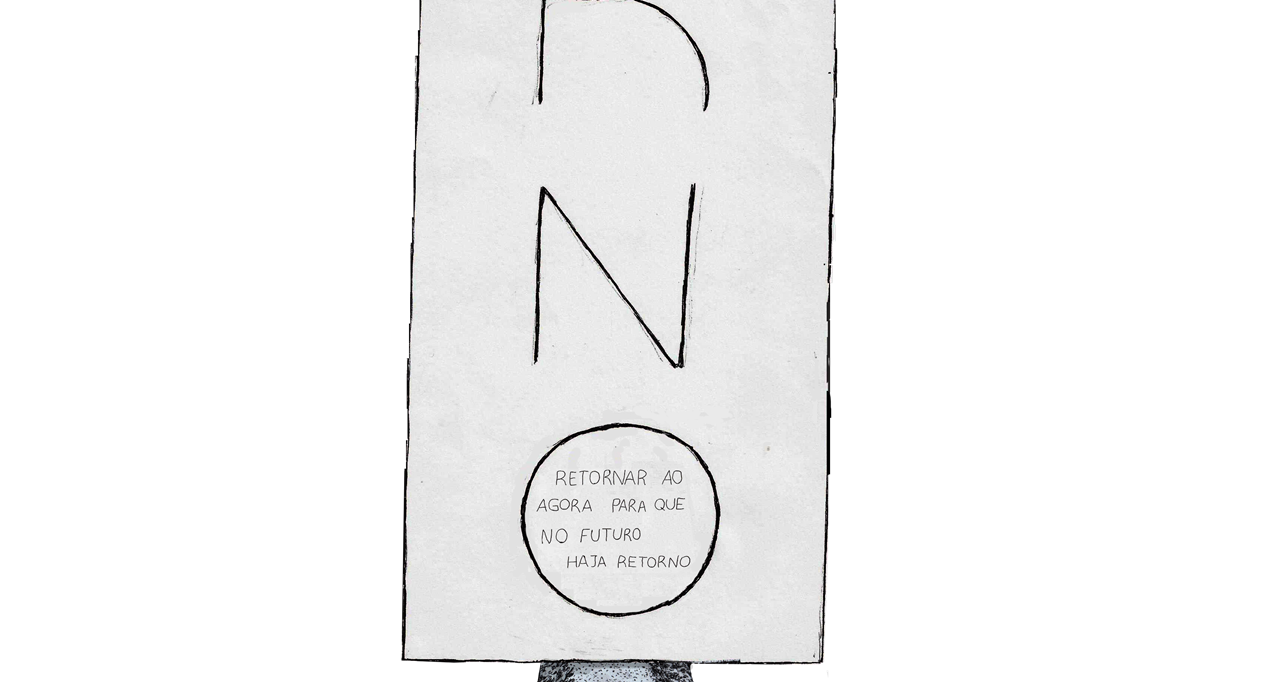 N
O
RETORNAR AO
AGORA PARA QUE
NO FUTURO
HAJA RETORNO